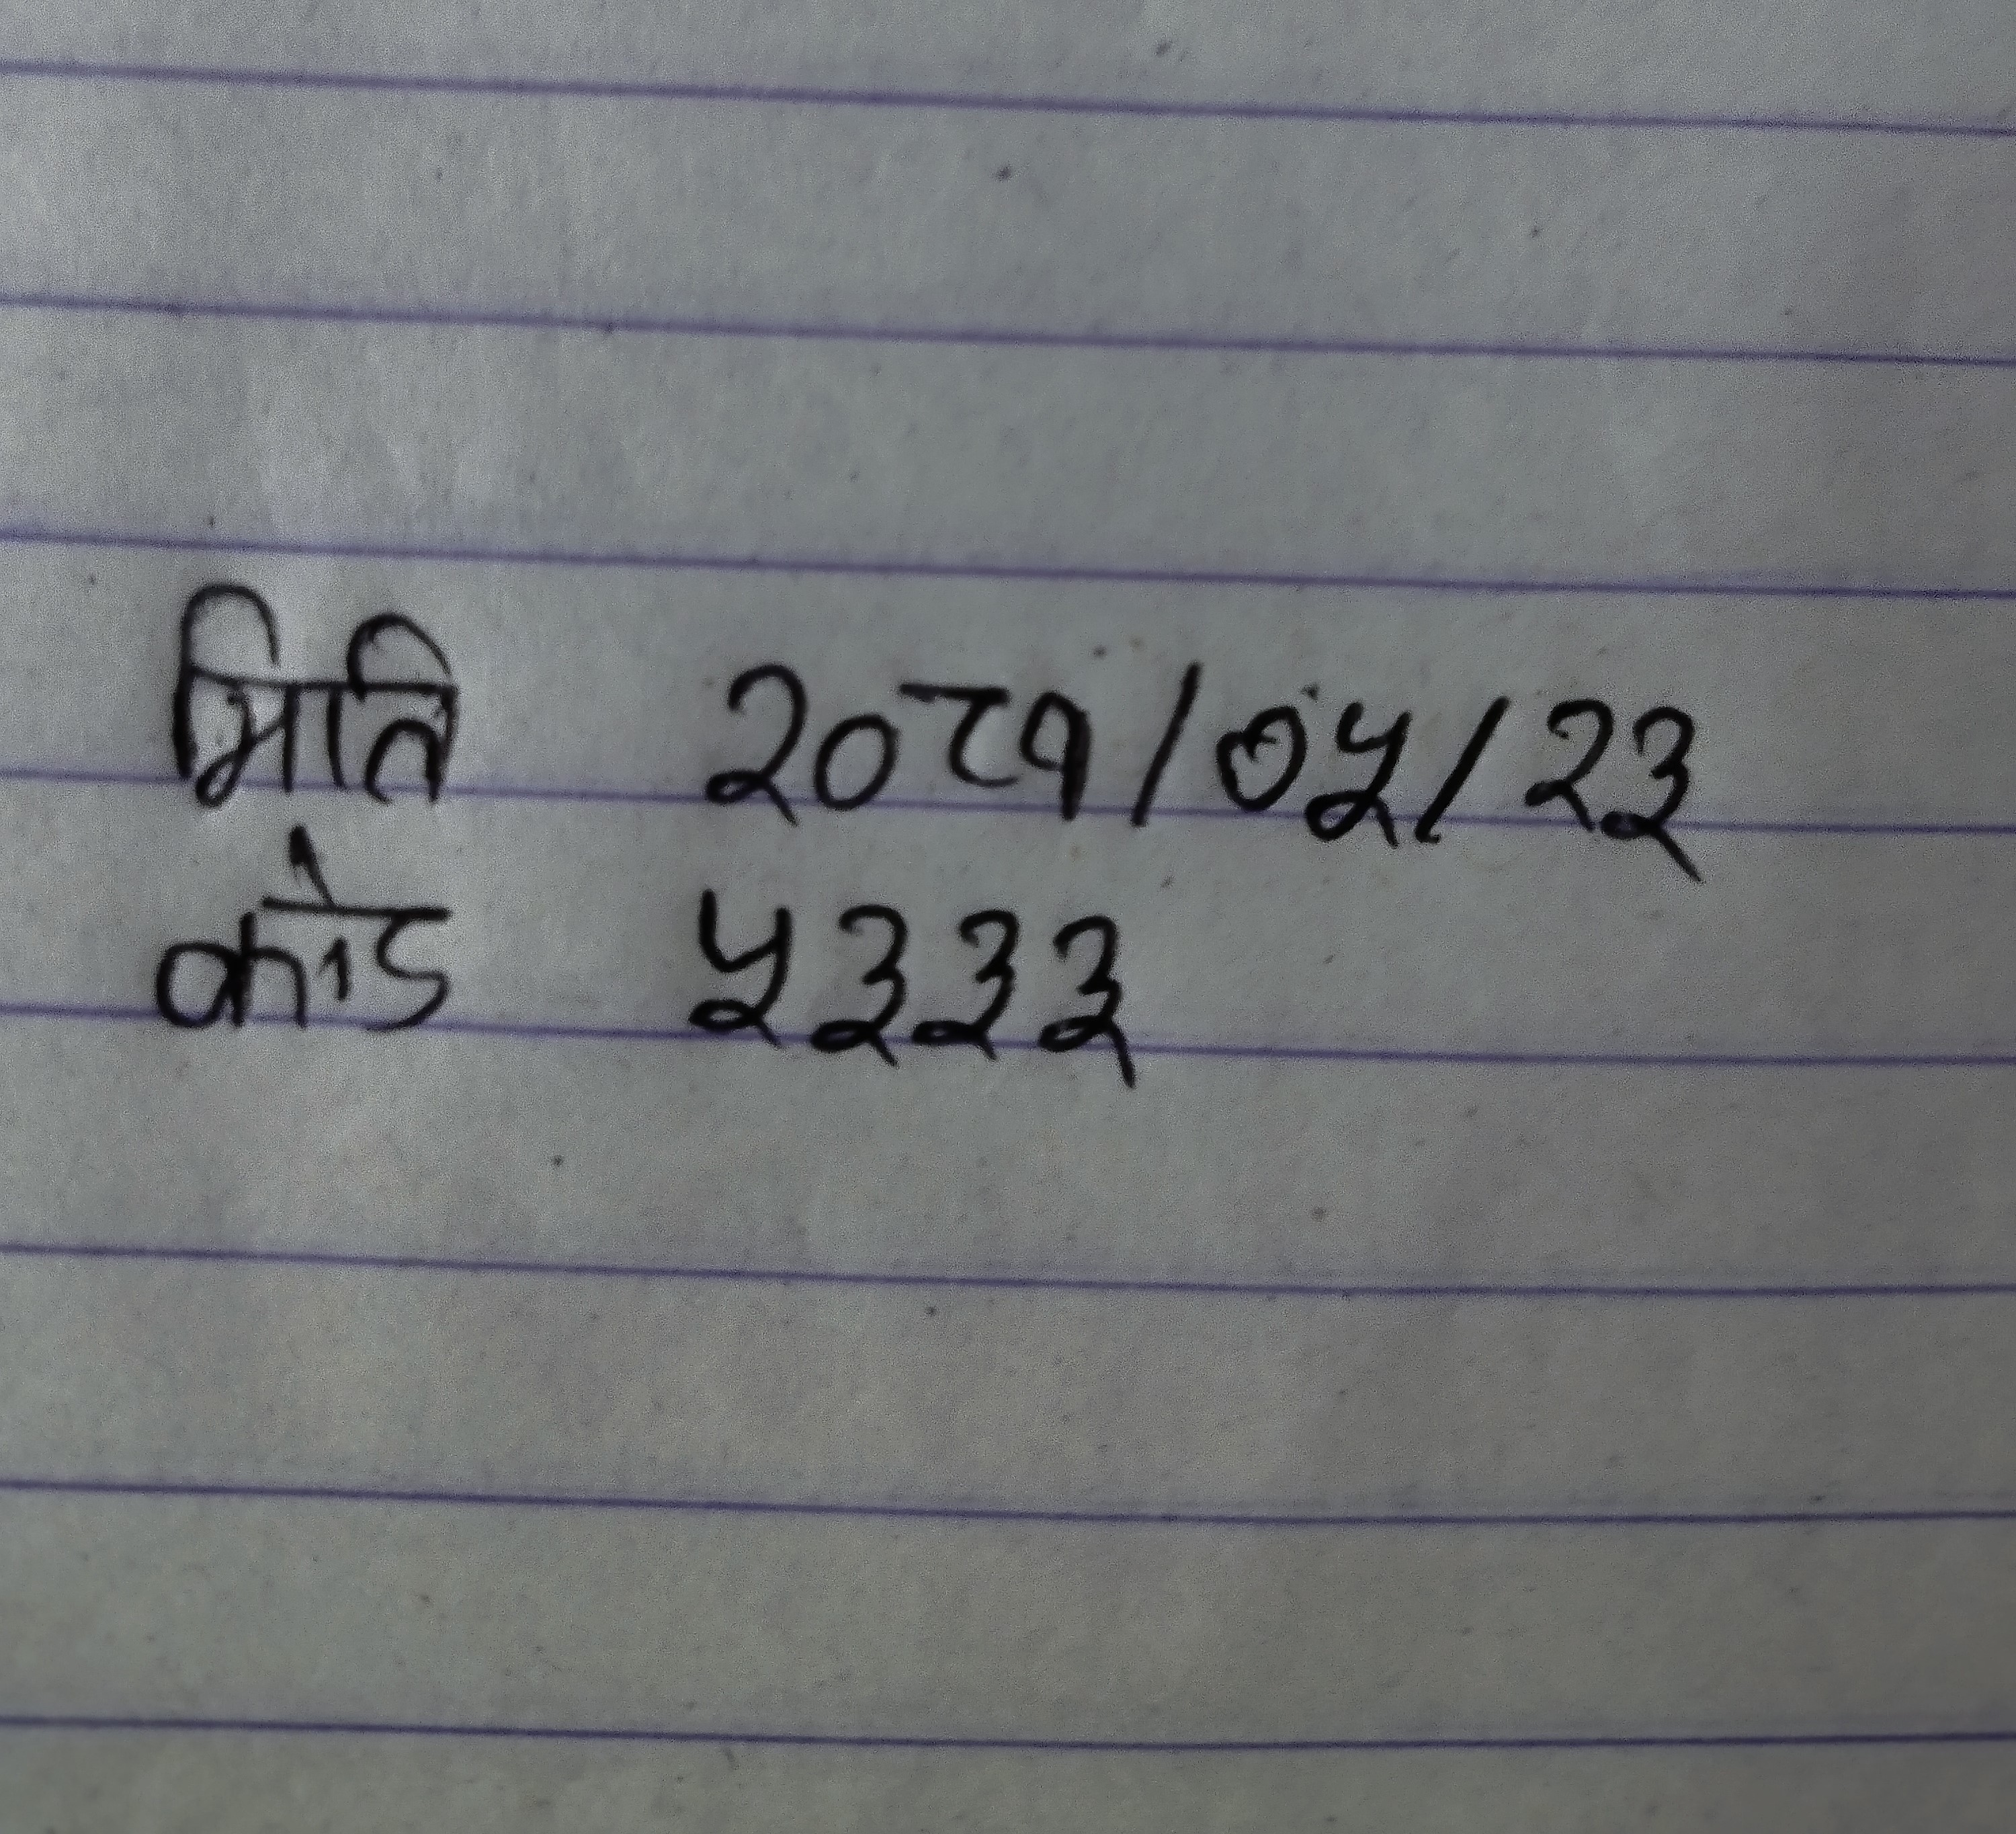 मिति २०८१/०५/२३
कोड ५३३३